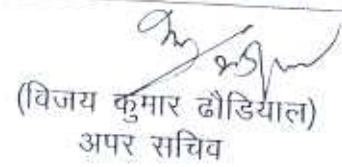 (विजय कुमार ढौडियाल)
अपर सचिव